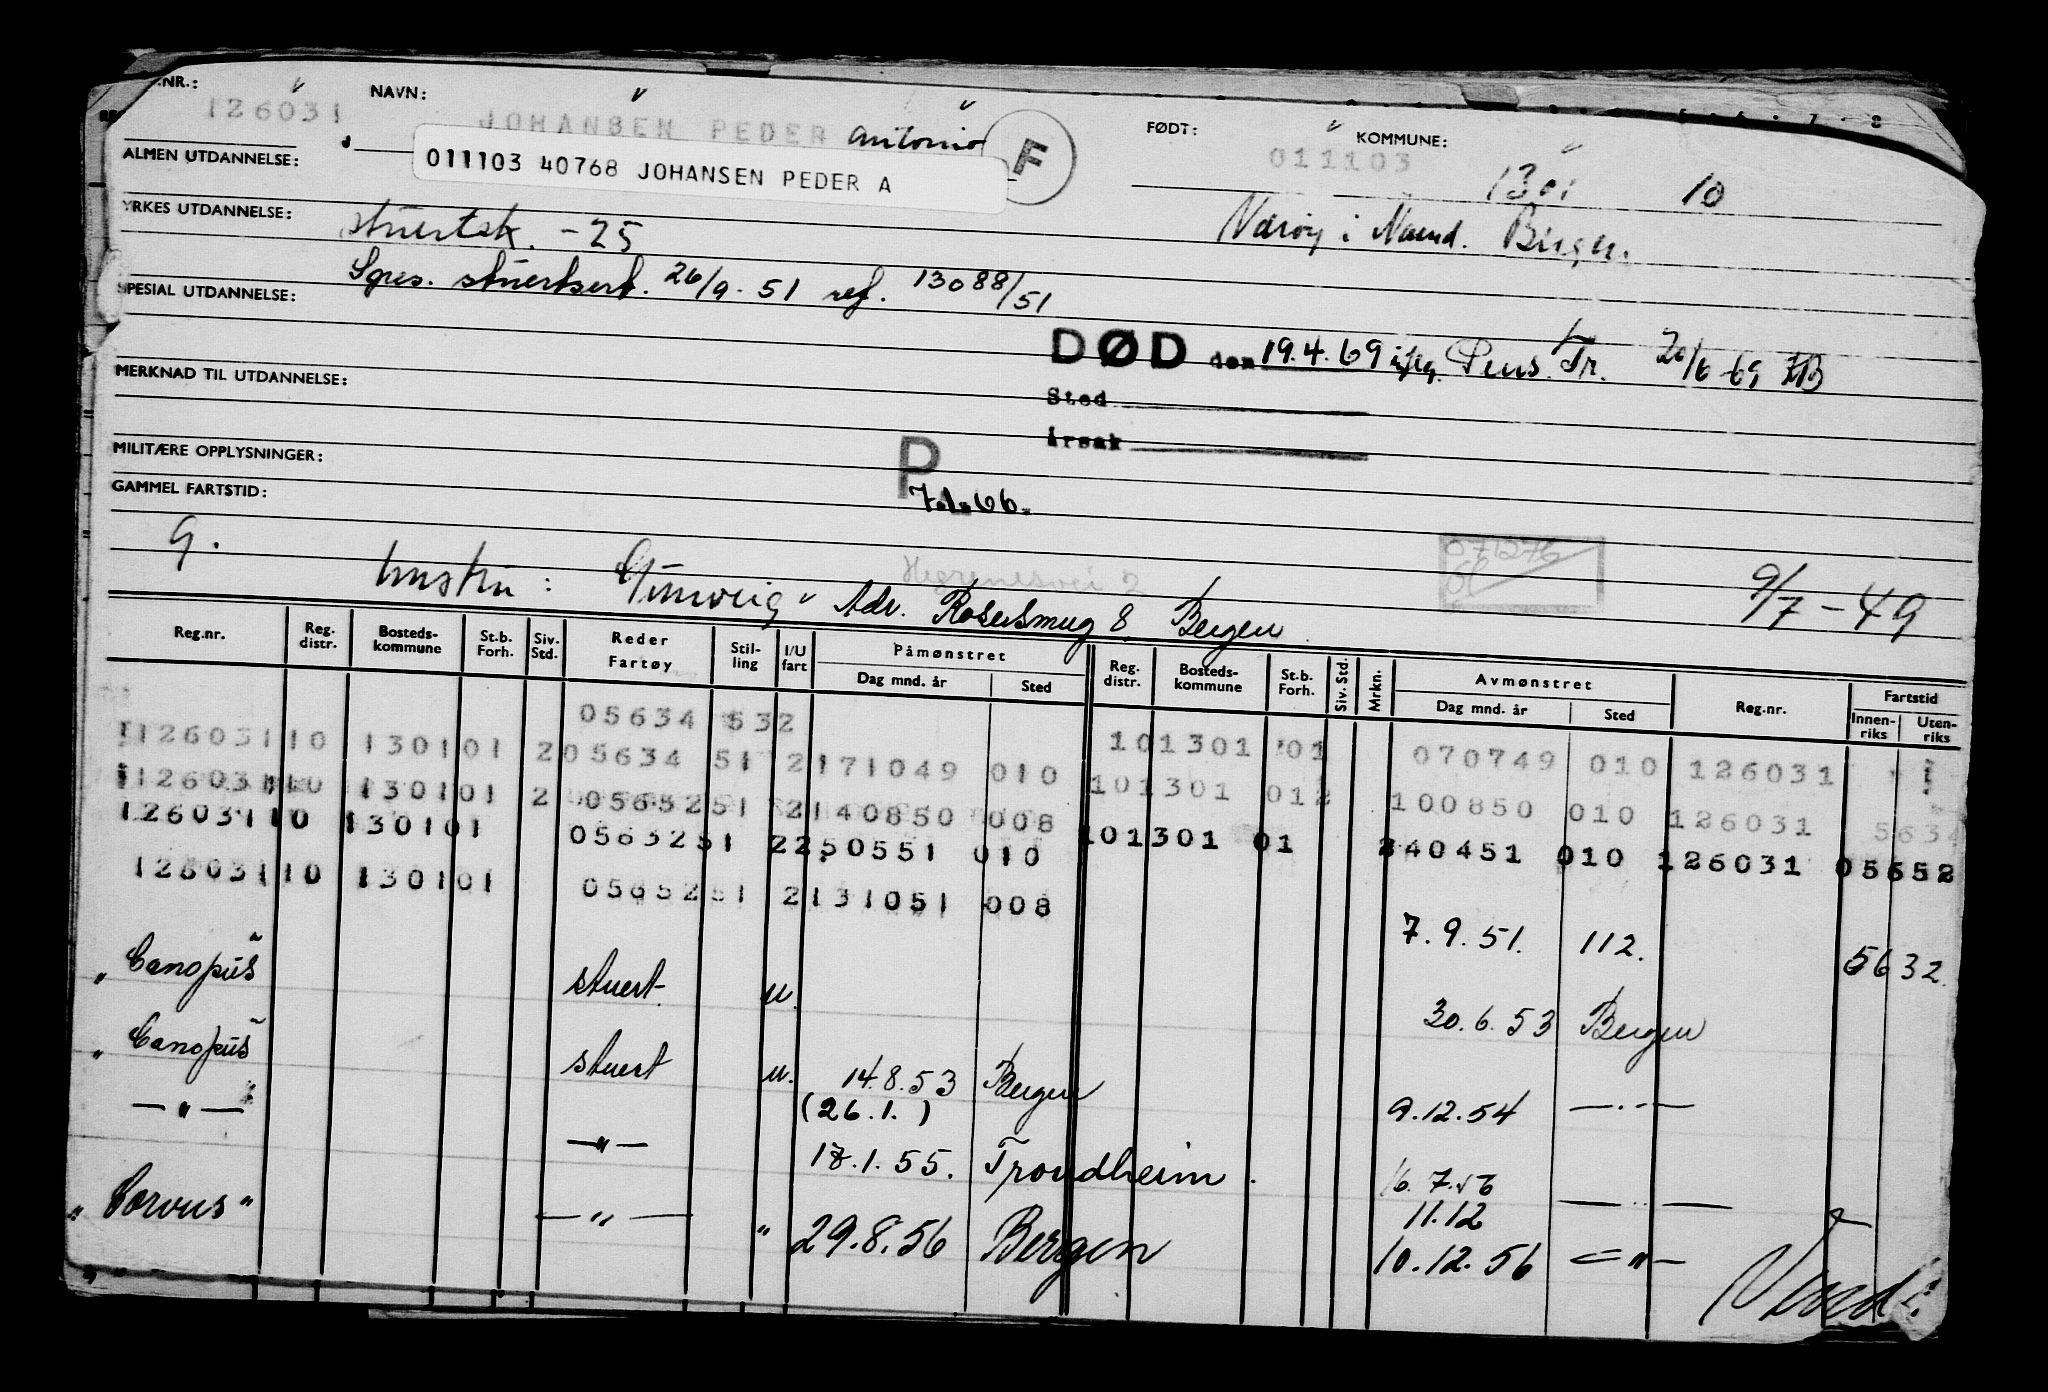 .NR.: 126031 NAVN: JOHANSEN PEDER Antonio F FØDT: 011103 KOMMUNE: 1301 10
011103 40768 JOHANSEN PEDER A
ALMEN UTDANNELSE:
YRKES UTDANNELSE: stuertsk. - 25 Værøy i Bergen.
Spes. stuertsert. 26/9-51 ref. 13088/51
SPESIAL UTDANNELSE:
DØD den 19.4.69 iflg. Pens. Tr. 20/6-69
MERKNAD TIL UTDANNELSE:
Sted
Årsak
MILITÆRE OPPLYSNINGER: P
GAMMEL FARTSTID: 7.1.66.
9. hustru: Gunveig Hegrenesvei 2 071276 9/7-49
Adr. Rosesmug 8, Bergen
Reg.nr. Reg. distr. Bosteds-kommune St.b. Forh. Siv. Std. Reder Fartøy Stil-ling I/U fart Påmønstret Dag mnd. år Sted Reg. distr. Bosteds-kommune St.b. Forh. Siv. Std. Mrkn. Avmønstret Dag mnd. år Sted Reg.nr. Fartstid Innen-riks Uten-riks
05634 532
126031 10 1301 01 2 05634 51 2 171049 010 10 1301 01 070749 010 126031
126031 10 1301 01 2 05652 51 2 140850 008 10 1301 012 100850 010 126031 5634
126031 10 1301 01 05632 51 2 250551 010 10 1301 01 240451 010 126031 05652
126031 10 1301 01 05652 51 2 131051 008
7.9.51. 112. 5632.
"Canopus" stuert. u. 30.6.53 Bergen
"Canopus" stuert u. 14.8.53 Bergen 9.12.54 — " —
(26.1.)
— " — — " — 18.1.55. Trondheim. 16.7.56 — " —
11.12
"Corvus" — " — " 29.8.56 Bergen 10.12.56 — " —
Vend!